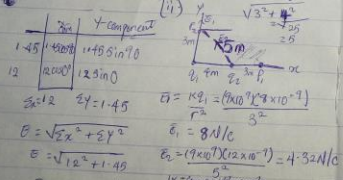 (ii)
Y-component
1.45 1.45cos90 1.45 Sin90
12 12cos0 12 Sin0
Σx=12 ΣY=1.45
E = √Σx² + ΣY²
E = √12² + 1.45
Y
E₁
P₂
5m
3m
q₁ 4m q₂ 3m P₁ x
√3² + 4²
= √25
= 5
E₁ = kq₁/r² = (9x10⁹)(8x10⁻⁹)/3²
E₁ = 8N/C
E₂ = (9x10⁹)(12x10⁻⁹)/5² = 4.32N/C